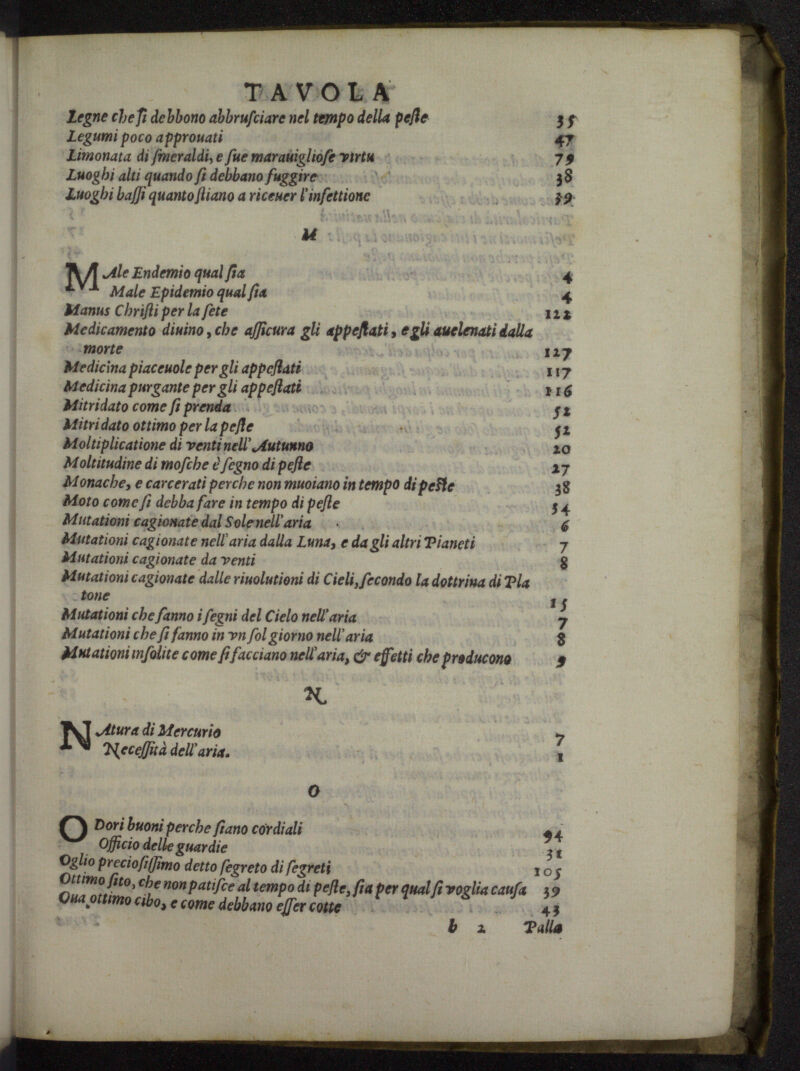 TAVOLA
Legne che si debbono abbrusciare nel tempo della peste 35
Legumi poco approuati 47
Limonata di smeraldi, e sue marauigliose virtu 79
Luoghi alti quando si debbano fuggire 38
Luoghi bassi quanto stiano a riceuer l'infettione 39
M
MAle Endemio qual sia 4
Male Epidemio qual sia 4
Manus Christi per la sete 122
Medicamento diuino, che assicura gli appestati, e gli auelenati dalla
morte 127
Medicina piaceuole per gli appestati 117
Medicina purgante per gli appestati 116
Mitridato come si prenda 52
Mitridato ottimo per la peste 52
Moltiplicatione di venti nell'Autunno 20
Moltitudine di mosche è segno di peste 27
Monache, e carcerati perche non muoiano in tempo di peste 38
Moto come si debba fare in tempo di peste 54
Mutationi cagionate dal Sole nell'aria 6
Mutationi cagionate nell'aria dalla Luna, e da gli altri Pianeti 7
Mutationi cagionate da venti 8
Mutationi cagionate dalle riuolutioni di Cieli, secondo la dottrina di Pla
tone 15
Mutationi che fanno i segni del Cielo nell'aria 7
Mutationi che si fanno in vn sol giorno nell'aria 8
Mutationi insolite come si facciano nell'aria, & effetti che producono 9
N
NAtura di Mercurio 7
Necessità dell'aria. 1
O
ODori buoni perche siano cordiali 94
Officio delle guardie 31
Oglio preciosissimo detto segreto di segreti 105
Ottimo sito, che non patisce al tempo di peste, sia per qual si voglia causa 39
Oua ottimo cibo, e come debbano esser cotte 43
b 2 Palla